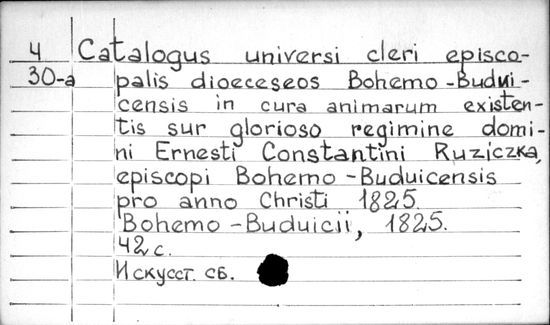 4 Catalogus universi cleri episco-
30-a palis dioeceseos Bohemo-Budui-
censis in cura animarum existen-
tis sur glorioso regimine domi-
ni Ernesti Constantini Ruziczka,
episcopi Bohemo-Buduicensis
pro anno Christi 1825.
Bohemo-Buduicii, 1825.
42 с.
Искусст. сб.